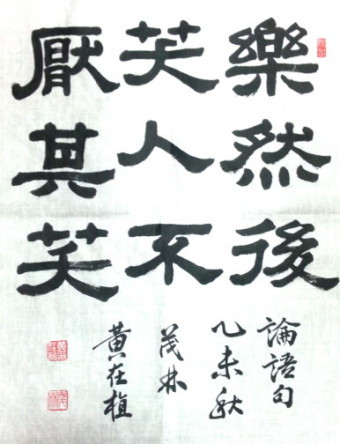 樂然後
笑人不
厭其笑
論語句
乙未秋
茂林
黃在植